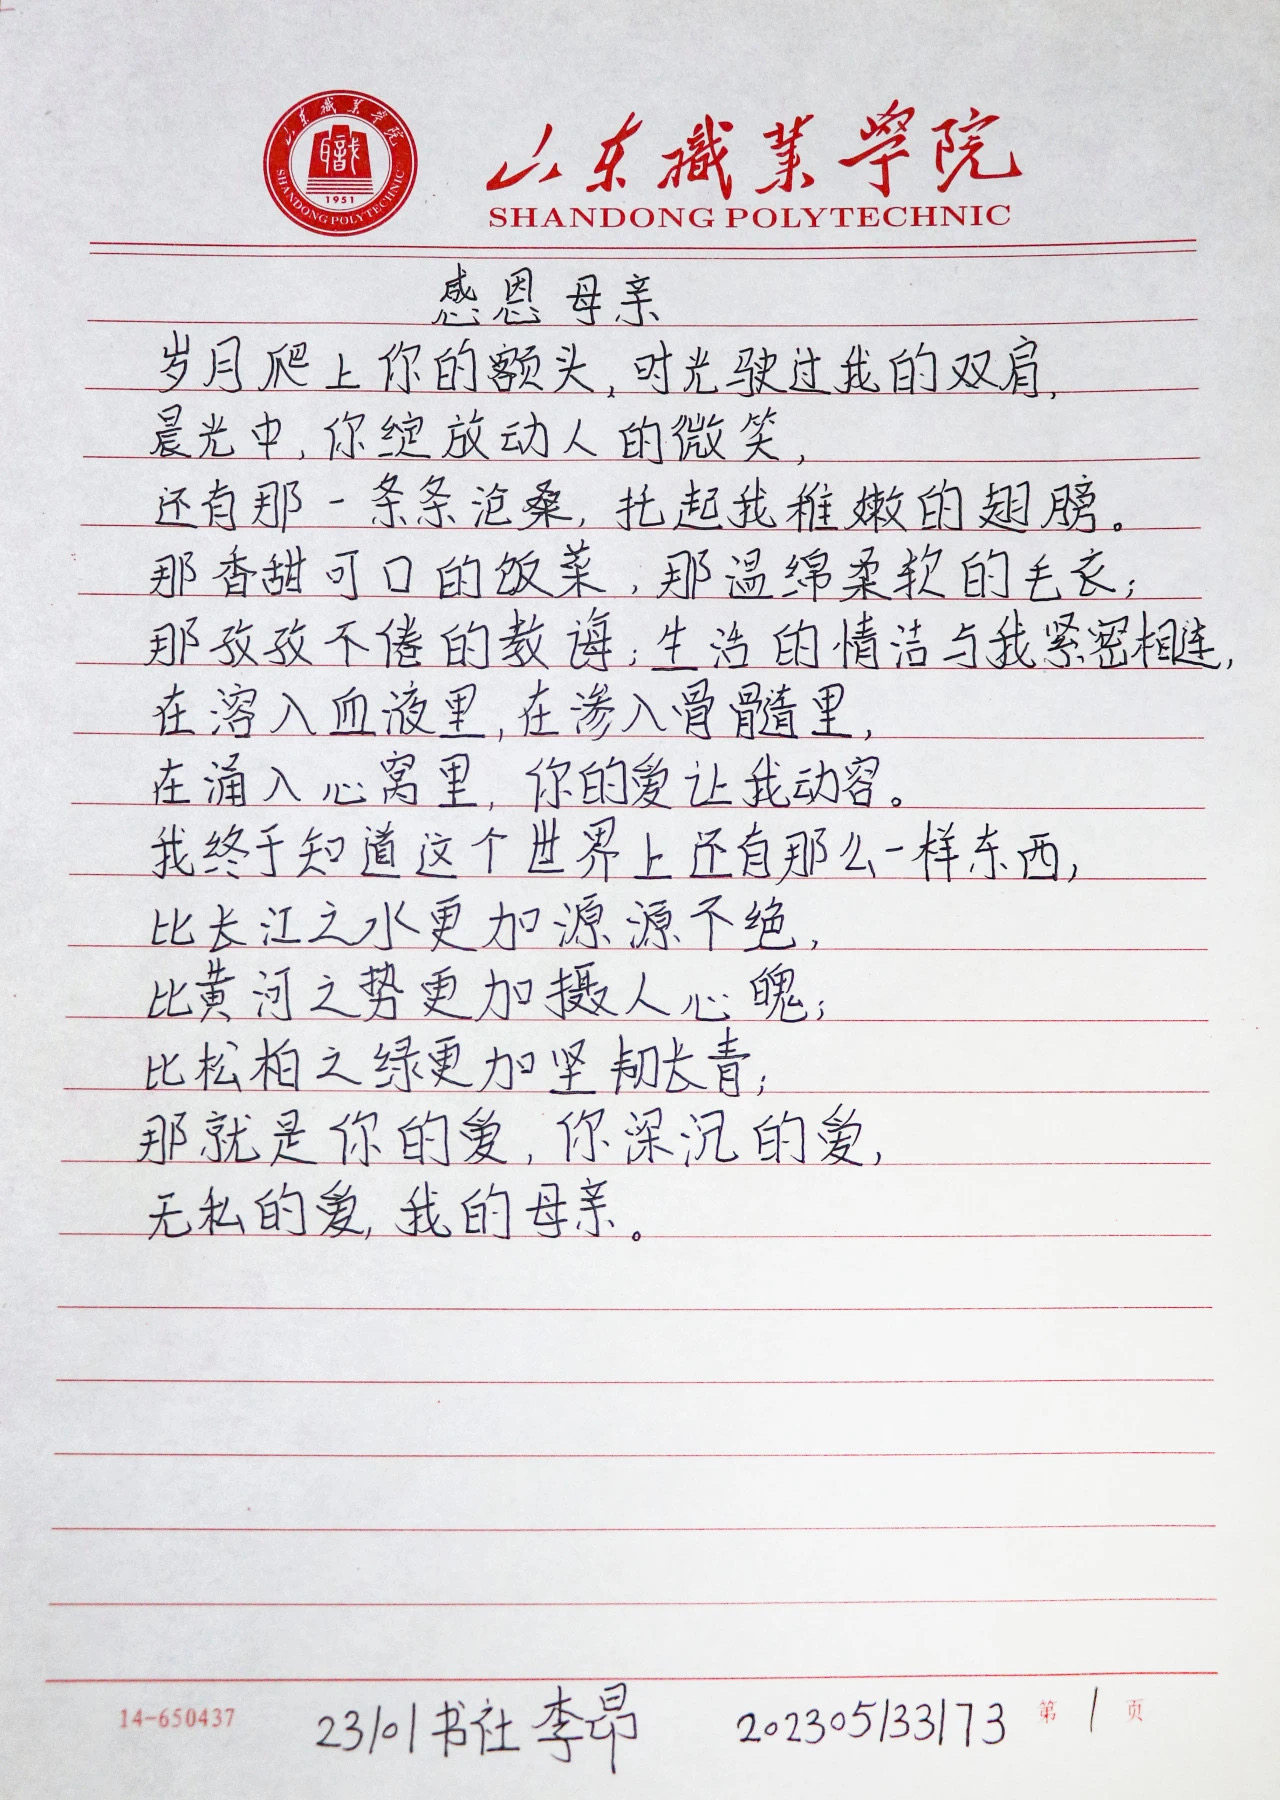 山东職業學院
SHANDONG POLYTECHNIC
山东職業学院
職
1951
SHANDONG POLYTECHNIC
感恩母亲
岁月爬上你的额头,时光驶过我的双肩,
晨光中,你绽放动人的微笑,
还有那一条条沧桑,托起我稚嫩的翅膀。
那香甜可口的饭菜,那温绵柔软的毛衣;
那孜孜不倦的教诲;生活的情洁与我紧密相连,
在溶入血液里,在渗入骨髓里,
在涌入心窝里,你的爱让我动容。
我终于知道这个世界上还有那么一样东西,
比长江之水更加源源不绝,
比黄河之势更加摄人心魄;
比松柏之绿更加坚韧长青;
那就是你的爱,你深沉的爱,
无私的爱,我的母亲。
14-650437
23101书社李昂
202305133173
第1页